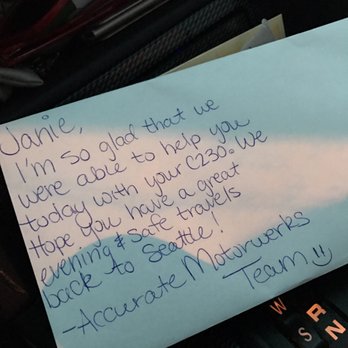 Janie,
I'm so glad that we
were able to help you
today with your C230. We
Hope you have a great
evening & safe travels
back to Seattle!
-Accurate Motorwerks
Team
W
S
R
N